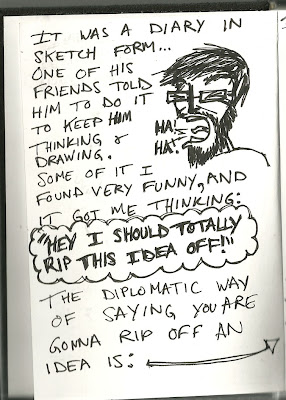 IT WAS A DIARY IN
SKETCH FORM...
ONE OF HIS
FRIENDS TOLD
HIM TO DO IT
TO KEEP HIM
THINKING &
DRAWING.
HA!
HA!
SOME OF IT I
FOUND VERY FUNNY, AND
IT GOT ME THINKING:
"HEY I SHOULD TOTALLY
RIP THIS IDEA OFF!"
THE DIPLOMATIC WAY
OF SAYING YOU ARE
GONNA RIP OFF AN
IDEA IS: